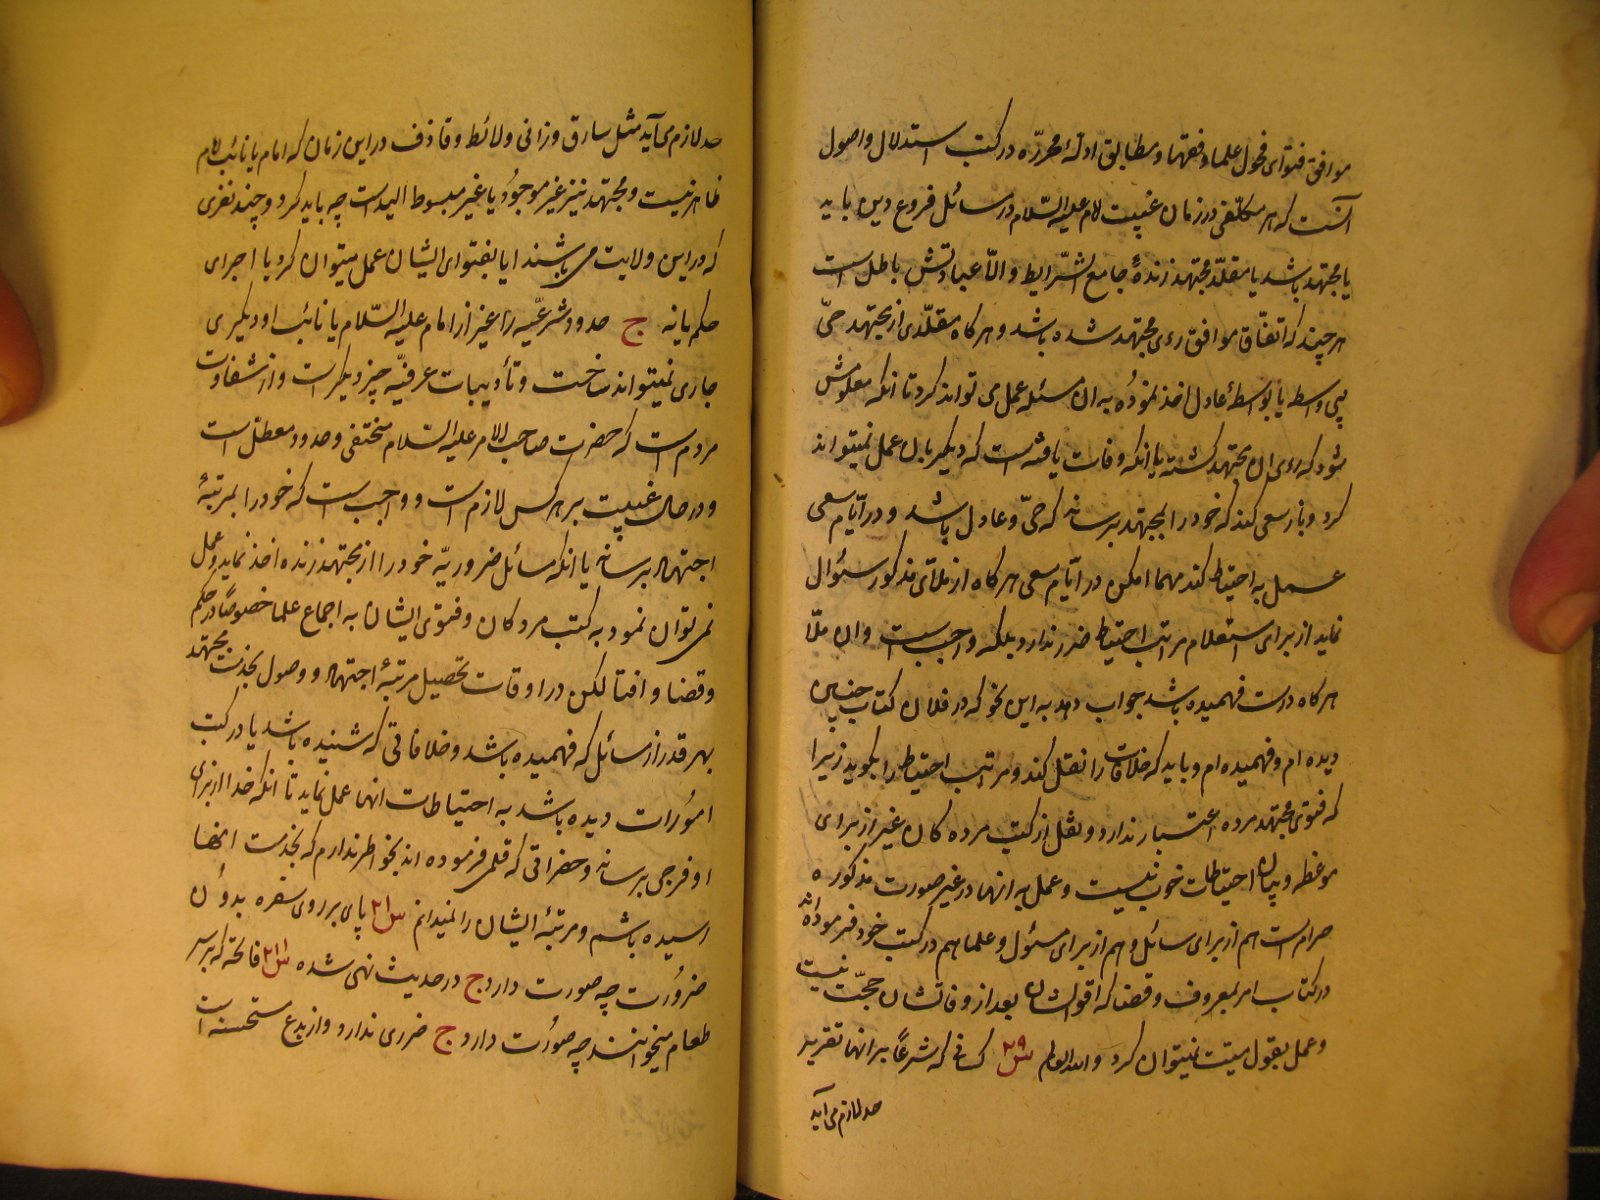 موافق فتوای فحول علما و فقها و مطابق ادلّهٔ محرّره در کتب استدلال و اصول
آنست که هر مکلّفی در زمان غیبت امام علیه السّلام در مسائل فروع دین باید
یا مجتهد باشد یا مقلّد مجتهد زندهٔ جامع الشّرایط و الّا عباداتش باطل است
هر چند که اتفّاقا موافق رءی مجتهد شده باشد و هر کاه مقلّدی از مجتهد حیّ
بیواسطه یا بواسطهٔ عادل اخذ نموده به ان مسئله عمل می تواند کرد تا انکه معلومش
شود که رءی ان مجتهد کشته یا انکه وفات یافته است که دیکر بان عمل نمیتواند
کرد و باز سعی کند که خود را بمجتهد برساند که حیّ و عادل باشد و در ایّام سعی
عمل به احتیاط کند مهما امکن در ایّام سعی هر کاه از ملّای مذکور سئوال
نماید از برای استعلام مراتب احتیاط ضرر ندارد بلکه واجب است و ان ملّا
هر کاه درست فهمیده باشد جواب دهد به این نحو که در فلان کتاب چنین
دیده ام و فهمیده ام و باید که خلافات را نقل کند و مراتب احتیاط را بکوید زیرا
که فتوی مجتهد مرده اعتبار ندارد و نقل از کتب مرده کان غیر از برای
موعظه و بیان احتیاطات خوب نیست و عمل به انها در غیر صورت مذکوره
حرام است هم از برای سائل و هم از برای مسئول و علما هم در کتب خود فرموده اند
در کتاب امر بمعروف و قضا که اقوالشان بعد از وفاتشان حجّت نیست
و عمل بقول میّت نمیتوان کرد والله العالم س٢٩ کسانی که شرعًا بر انها تقریر
حد لازم می آید
حد لازم می آید مثل سارق و زانی و لائط و قاذف در این زمان که امام یا نائب امام
ظاهر نیست و مجتهد نیز غیر موجود یا غیر مبسوط الید است چه باید کرد و چند نفری
که در این ولایت می باشند ایا بفتوای ایشان عمل میتوان کرد با اجرای
حکم یا نه ج حدود شرعیّه را غیر از امام علیه السّلام یا نائب او دیکری
جاری نمیتواند ساخت و تأدیبات عرفیّه چیز دیکر است و از شقاوت
مردم است که حضرت صاحب الامر علیه السّلام مختفی و حدود معطل است
و در حال غیبت بر هر کس لازم است و واجب است که خود را بمرتبهٔ
اجتهاد برساند یا انکه مسائل ضروریّه خود را از مجتهد زنده اخذ نماید و عمل
نمی توان نمود به کتب مردکان و فتوی ایشان به اجماع علما خصوصًا در حکم
و قضا و افتا لکن در اوقات تحصیل مرتبهٔ اجتهاد و وصول بخدمت مجتهد
بهر قدر از مسائل که فهمیده باشد و خلافاتی که شنیده باشد یا در کتب
اموات دیده باشد به احتیاطات انها عمل نماید تا انکه خدا از برای
او فرجی برساند و حضراتی که قلمی فرموده اند بخواطر ندارم که بخدمت انها
رسیده باشم و مرتبهٔ ایشان را نمیدانم س٣٠ پای بر روی سفره بدون
ضرورت چه صورت دارد ج در حدیث نهی شده س٣١ فاتحه که بر سر
طعام میخوانند چه صورت دارد ج ضرری ندارد و از بدع مستحسنه است